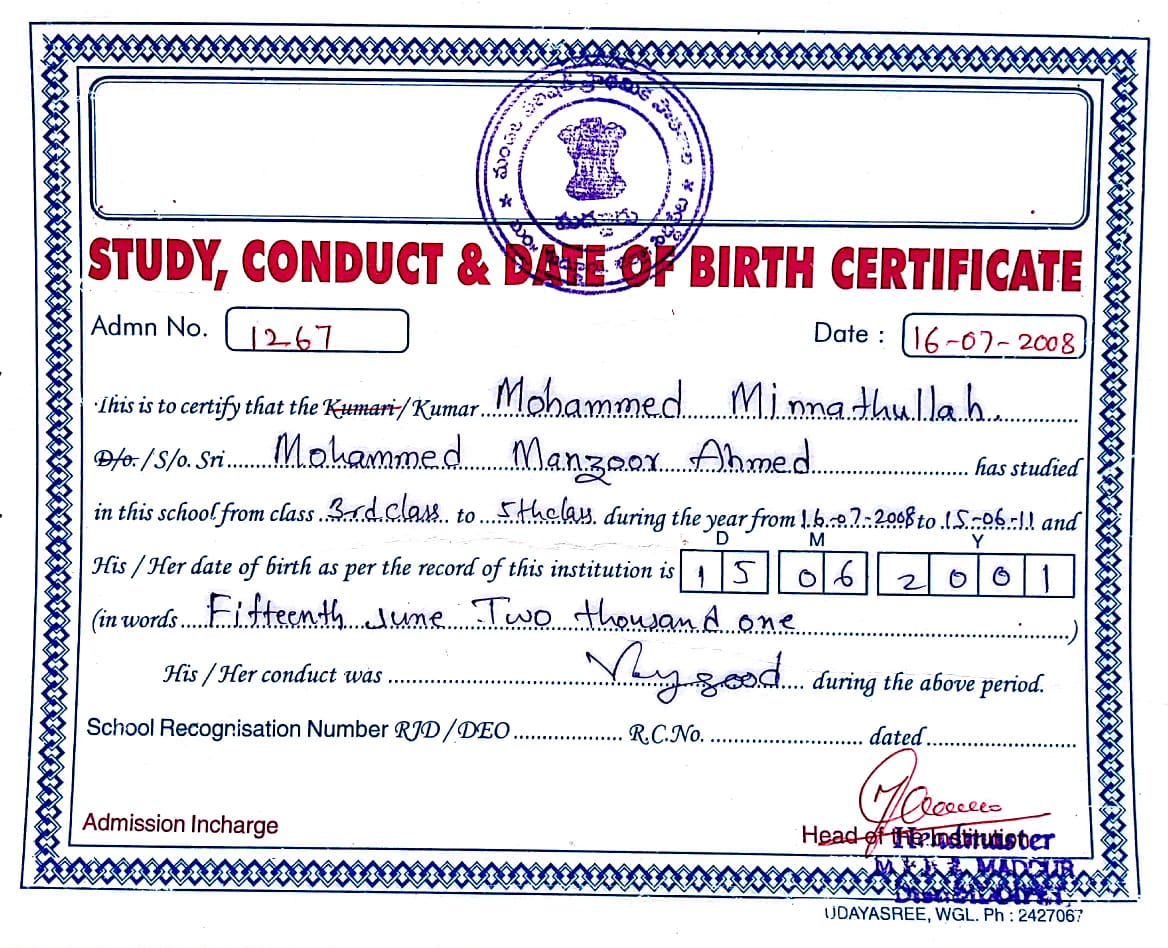 మండల పరిషత్ ప్రాథమిక పాఠశాల
STUDY, CONDUCT & DATE OF BIRTH CERTIFICATE
Admn No. 1267 Date : 16-07-2008
This is to certify that the Kumari / Kumar Mohammed Minnathullah.
D/o. / S/o. Sri Mohammed Manzoor Ahmed has studied
in this school from class 3rd class to 5th class during the year from 16-07-2008 to 15-06-11 and
D M Y
His / Her date of birth as per the record of this institution is 1 5 0 6 2 0 0 1
(in words Fifteenth June Two thousand one )
His / Her conduct was Very good during the above period.
School Recognisation Number RJD / DEO R.C.No. dated
Admission Incharge
Head of the Institution
Headmaster
MADDUR
UDAYASREE, WGL. Ph : 2427067